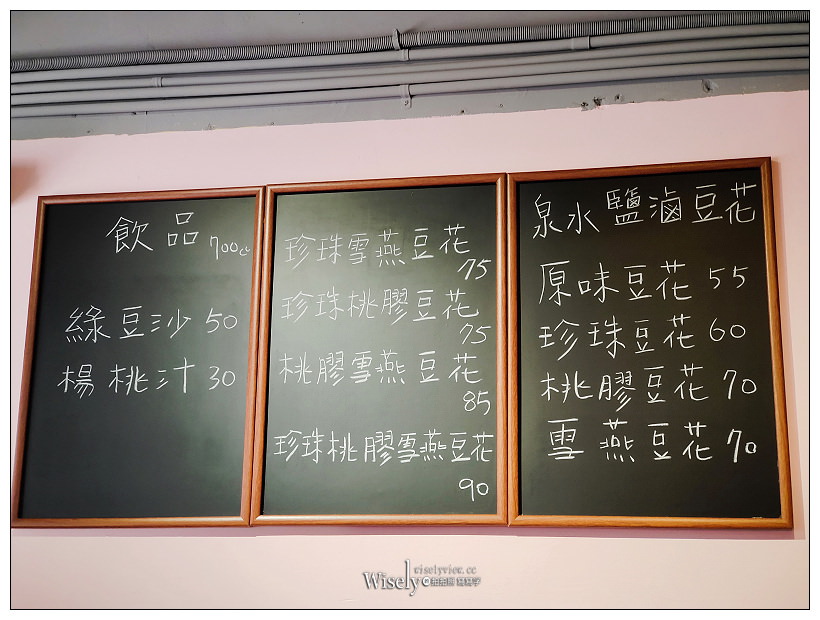 飲品 700cc
綠豆沙 50
楊桃汁 30
珍珠雪燕豆花
75
珍珠桃膠豆花
75
桃膠雪燕豆花
85
珍珠桃膠雪燕豆花
90
泉水鹽滷豆花
原味豆花 55
珍珠豆花 60
桃膠豆花 70
雪燕豆花 70
wiselyview.cc
Wisely